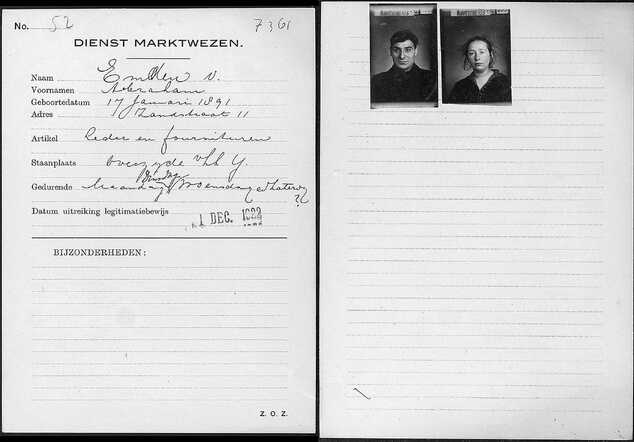 No. 52 7361
DIENST MARKTWEZEN.
Naam Emden v.
Voornamen Abraham
Geboortedatum 17 Januari 1891
Adres Zandstraat 11
Artikel leder en fournituren
Staanplaats overzijde
Dinsdag
Gedurende Maandag Woensdag
?
Datum uitreiking legitimatiebewijs 1 DEC. 1922
BIJZONDERHEDEN:
Z. O. Z.